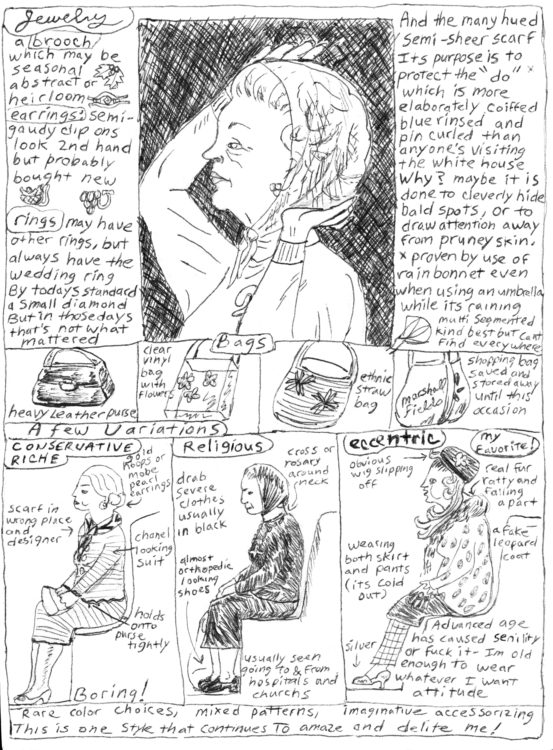 Jewelry
a brooch
which may be
seasonal
abstract or
heirloom
earrings: semi-
gaudy clip ons
look 2nd hand
but probably
bought new
rings may have
other rings, but
always have the
wedding ring
By todays standard
a small diamond
But in those days
that's not what
mattered
And the many hued
Semi-sheer scarf
Its purpose is to
protect the "do"*
which is more
elaborately coiffed
blue rinsed and
pin curled than
anyone's visiting
the white house
Why? maybe it is
done to cleverly hide
bald spots, or to
draw attention away
from pruney skin.
* proven by use of
rain bonnet even
when using an umbrella
while its raining
multi segmented
kind best but cant
find everywhere
Bags
heavy Leather purse
clear
vinyl
bag
with
flowers
ethnic
straw
bag
marshall
Fields
shopping bag
saved and
stored away
until this
occasion
A few Variations
CONSERVATIVE
RICHE
gold
hoops or
mobe
pearl
earrings
scarf in
wrong place
and
designer
chanel
looking
suit
holds
onto
purse
tightly
Boring!
Religious
cross or
rosary
around
neck
drab
severe
clothes
usually
in black
almost
orthopedic
looking
shoes
usually seen
going to & from
hospitals and
churchs
eccentric
my
Favorite!
obvious
wig slipping
off
real fur
ratty and
falling
apart
a fake
leopard
coat
wearing
both skirt
and pants
(its cold
out)
silver
Advanced age
has caused senility
or fuck it - Im old
enough to wear
whatever I want
attitude
Rare color choices, mixed patterns, imaginative accessorizing
This is one style that continues To amaze and delite me!